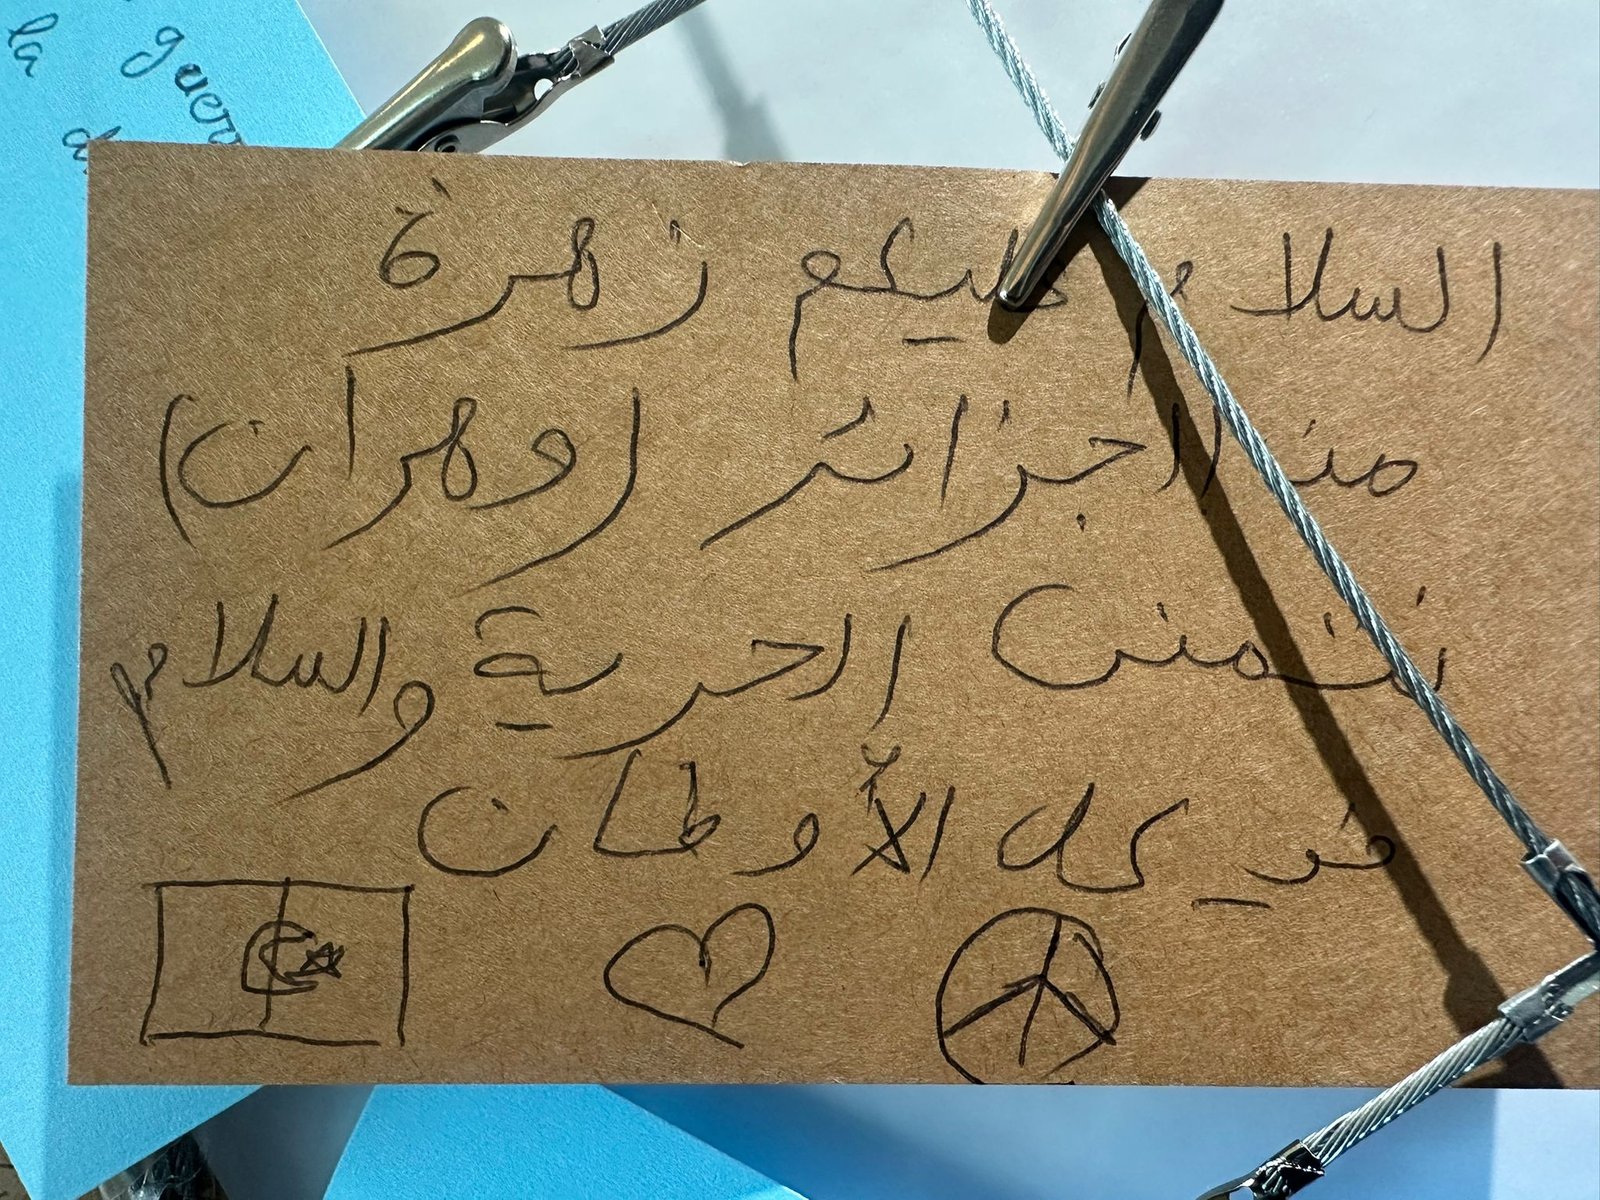 la
guerr
d
السلام عليكم زهرة
من الجزائر (وهران)
نتمنى الحرية والسلام
في كل الأوطان